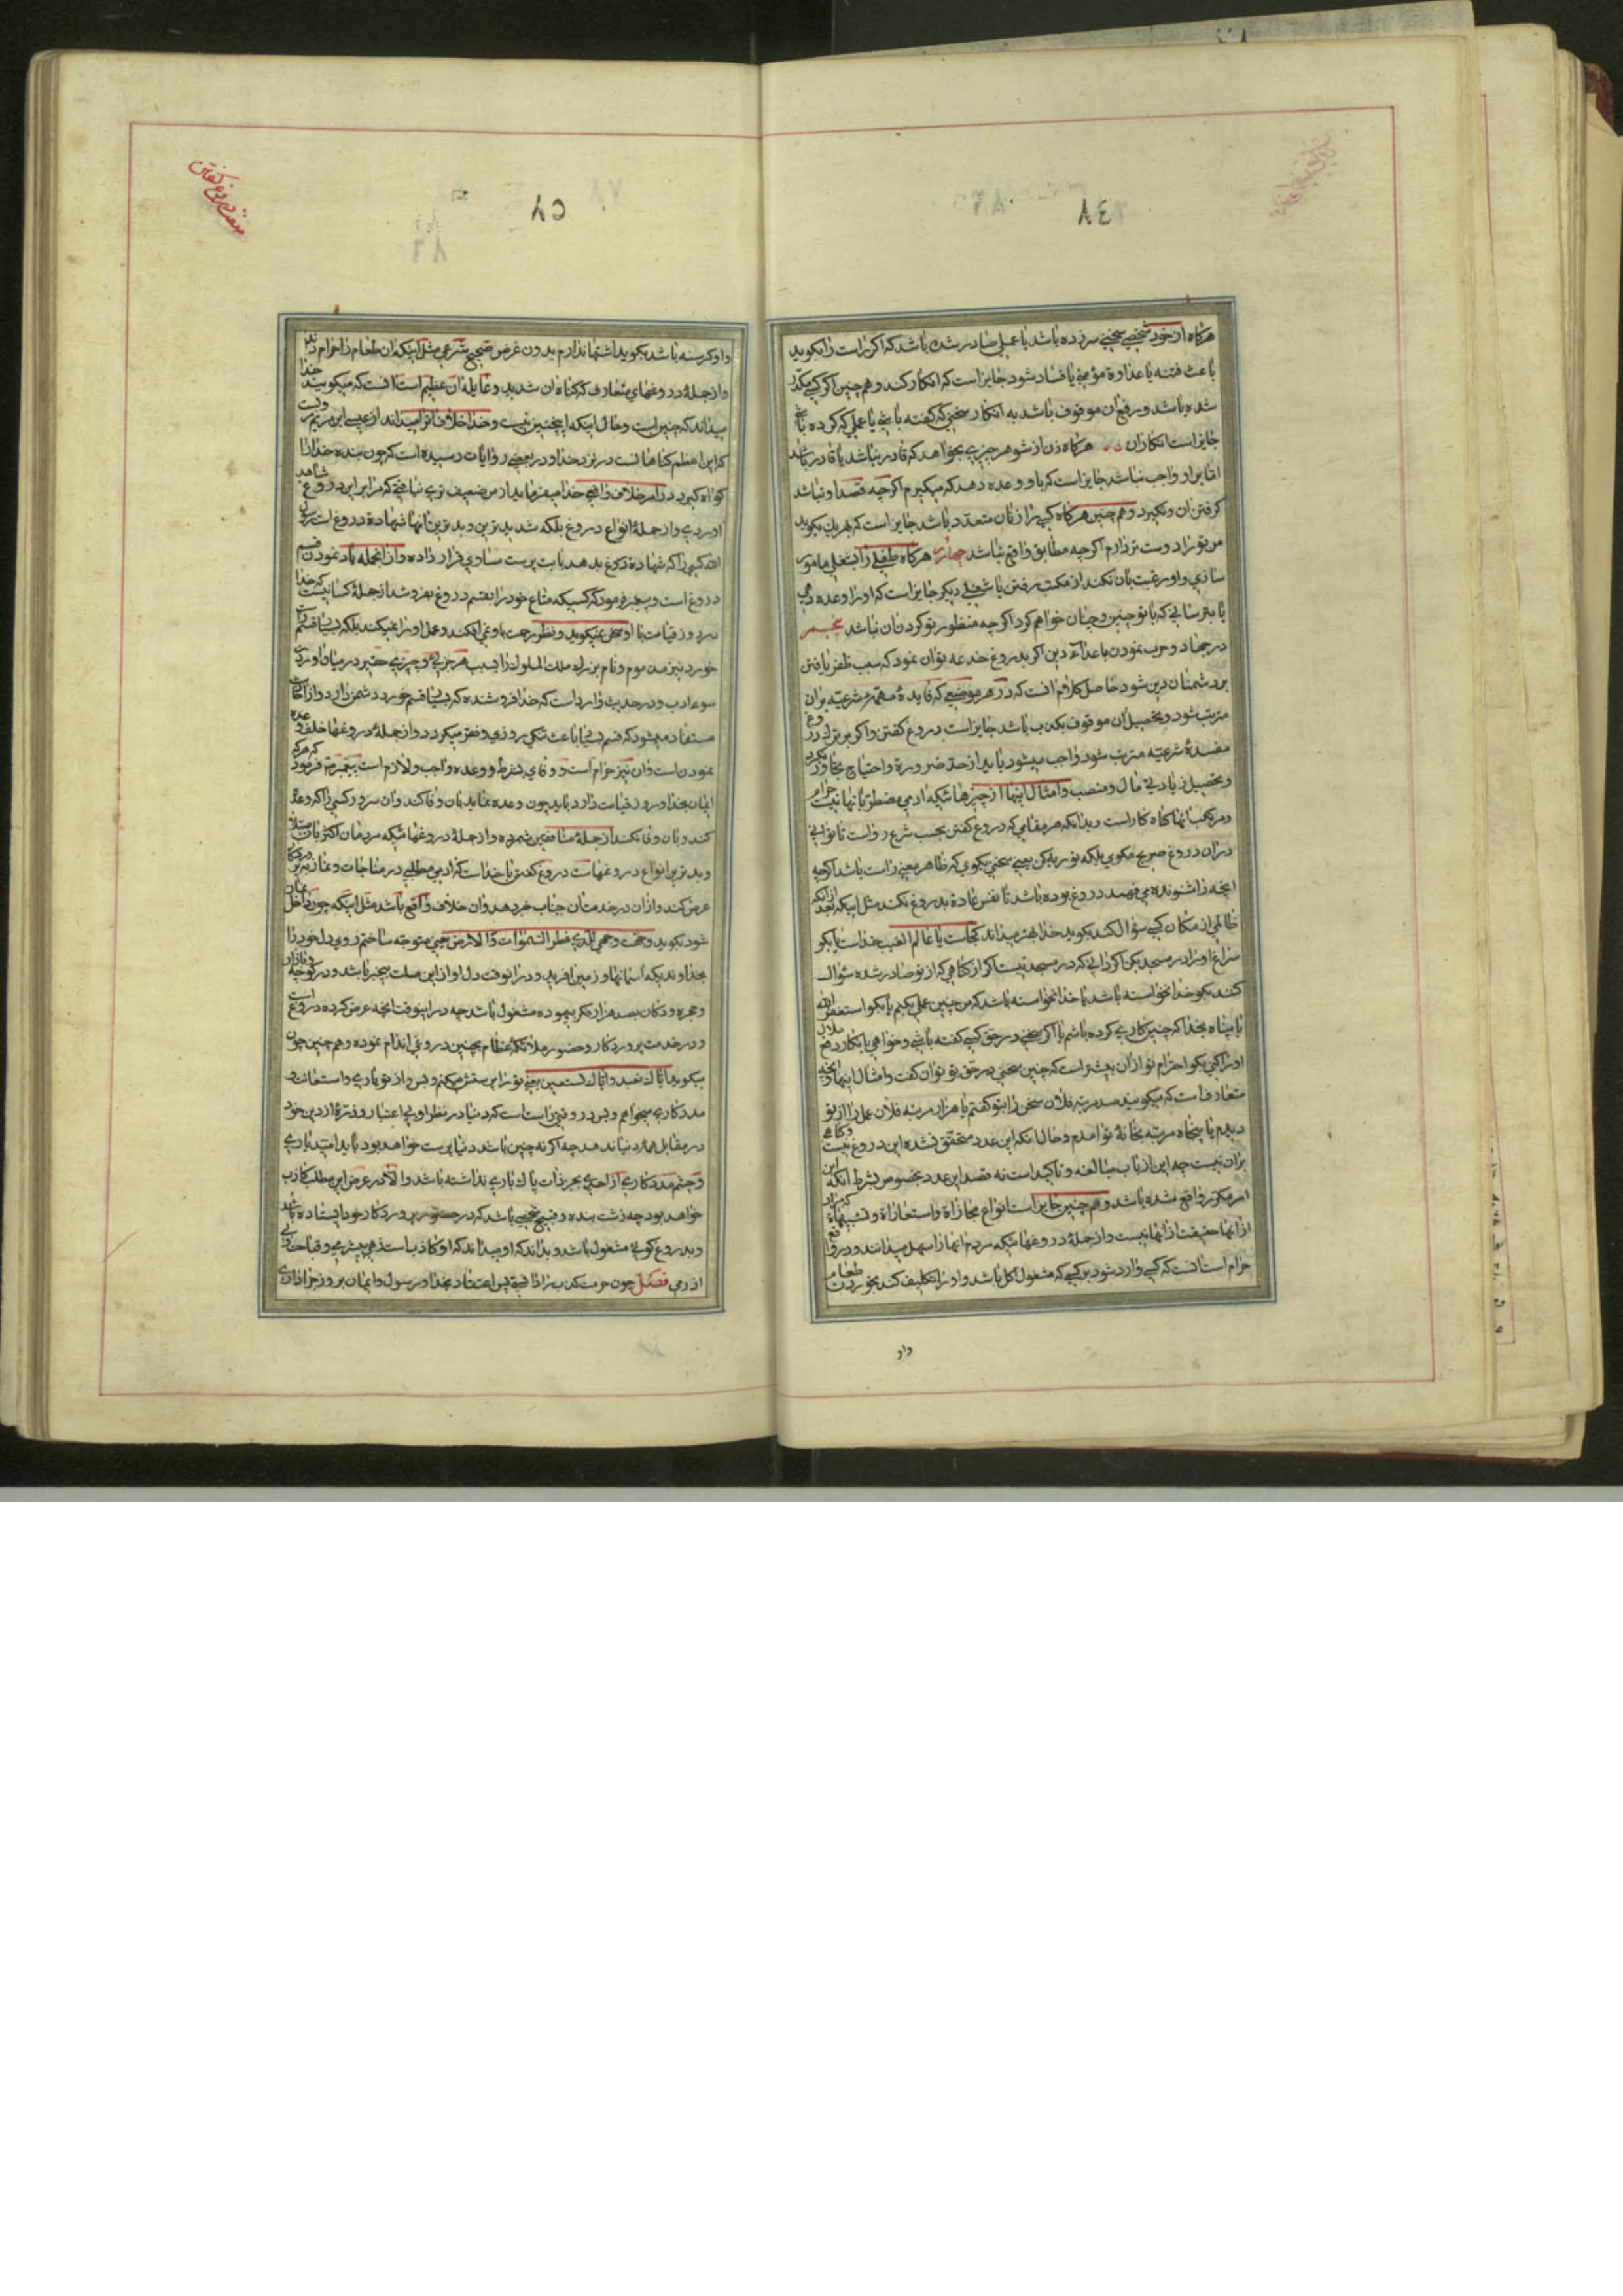 هرکاه از خود شخصی سخنی سرزده باشد یا عملی صادر شده باشد که اکر راست را بکوید
باعث فتنه یا عداوة مؤمنی یا فساد شود جایز است که انکار کند و هم چنین اکر کسی مکدر
شده باشد و رفع ان موقوف باشد به انکار سخنی که کفته باشی یا عملی که کرده باشی
جایز است انکار ان هرکاه زن از شوهر چیزی بخواهد که قادر نباشد یا قادر باشد
اما بر او واجب نباشد جایز است که باو وعده دهد که میکیرم اکرچه قصد او نباشد
کرفتن ان و نکیرد و هم چنین هرکاه کسی را زنان متعدد باشد جایز است که بهر یك بکوید
من تو را دوست تر دارم اکرچه مطابق واقع نباشد چهارم هرکاه طفلی را بشغلی مامور
سازی و او رغبت بان نکند از مکتب رفتن یا شغلی دیکر جایز است که او را وعده دهی
یا بترسانی که با تو چنین و چنان خواهم کرد اکرچه منظور تو کردن ان نباشد پنجم
در جهاد و حرب نمودن با اعداء دین اکر بدروغ خدعه توان نمود که سبب ظفر یافتن
بر دشمنان دین شود حاصل کلام انست که در هر موضعی که فایدهٔ مهمهٔ شرعیه بران
مترتب شود و تحصیل ان موقوف بکذب باشد جایز است دروغ کفتن و اکر بر ترك دروغ
مفسدهٔ شرعیه مترتب شود واجب میشود باید از حد ضرورة و احتیاج تجاوز نکرد
و تحصیل زیادتی مال و منصب و امثال اینها از چیزهائیکه ادمی مضطر بانها نیست حرام
و مرتکب انها کناه کار است و بدانکه هر مقامی که دروغ کفتن بحسب شرع رواست تا توانی
دران دروغ صریح مکوی بلکه توریه کن یعنی سخنی بکوی که ظاهر معنی راست باشد اکرچه
انچه را شنونده می فهمد دروغ بوده باشد تا نفس عادة بدروغ نکند مثل اینکه بعد ازانکه
ظالمی از مکان کسی سؤال کند بکوید خدا بهتر میداند کجاست یا عالم الغیب خداست یا بکو
سراغ او را در مسجد بکن اکر دانی که در مسجد نیست اکر از کناهی که از تو صادر شده سؤال
کند بکو خدا نخواسته باشد یا خدا نخواسته باشد که من چنین عملی بکنم یا بکو استغفر الله
یا پناه بخدا که چنین کاری کرده باشم یا اکر سخنی در حق کسی کفته باشی و خواهی بانکار دفع ملال
او را کنی بکو احترام تو ازان بیشتر است که چنین سخنی در حق تو توان کفت و امثال اینها و انچه
متعارفست که میکویند صد مرتبه فلان سخن را بتو کفتم یا هزار مرتبه فلان عمل را از تو
دیدم یا پنجاه مرتبه بخانهٔ تو امدم و حال انکه این عدد متحقق نشده این دروغ نیست و کناهی
بران نیست چه این از باب مبالغه و تاکید است نه قصد این عدد بخصوص بشرط انکه این
امر مکرر واقع شده باشد و هم چنین جایز است انواع مجازاة و استعاراة و تشبیهاة که مراد
از انها حقیقت از انها نیست و از جملهٔ دروغهائیکه مردم انها را سهل میدانند و در واقع
حرام است انست که کسی وارد شود بر کسی که مشغول اکل باشد و او را تکلیف کند بخوردن طعام
واو
داو کرسنه باشد بکوید اشتها ندارم بدون غرض صحیح شرعی مثل اینکه ان طعام را حرام داند
و از جملهٔ دروغهای متعارف که کناه ان شدید و غایلهٔ ان عظیم است انست که میکویند خدا
میداند که چنین است و حال اینکه اینچنین نیست و خدا خلاف انرا میداند از عیسی ابن مریم
که این اعظم کناهانست در نزد خدا و در بعضی روایات رسیده است که چون بنده خدا را
کواه کیرد در امر خلاف واقعی خدا میفرماید از من ضعیف تری نیافتی که مرا بر این دروغ شاهد
اوردی و از جملهٔ انواع دروغ بلکه شدیدترین و بدترین انها شهادة دروغ است
الله کسی را که شهادة دروغ بدهد با بت پرست مساوی قرار داده و از انجمله یاد نمودن قسم
دروغ است و پیغمبر فرمود که کسیکه متاع خود را بقسم دروغ بفروشد از جملهٔ کسانیست که خدا
در روز قیامت با او سخن نمیکوید و نظر رحمت باو نمی افکند و عمل او را نمیکند بلکه بسیار قسم
خوردن نیز مذموم و نام بزرك ملك الملوك را بسبب هر جزئی و چیزی حقیر در میان اوردن
سوء ادب و در حدیث وارد است که خدا فروشنده که بسیار قسم خورد دشمن دارد و از
مستفاد میشود که قسم بسیار باعث تنکی روزی و فقر میکردد و از جملهٔ دروغها خلف وعده
نمودن است وان نیز حرام است و وفای بشرط و وعده واجب و لازم است پیغمبر فرمود که هرکه
ایمان بخدا و روز قیامت دارد باید چون وعده نماید بان وفا کند و ان سرور کسی را که وعده
کند و بان وفا نکند از جملهٔ منافقین شمرده و از جملهٔ دروغهائیکه مردمان اکثر بان مبتلا
و بدترین انواع دروغهاست دروغ کفتن با خداست که ادمی مطلبی در مناجات و نماز
عرض کند و ازان در خدمت ان جناب خبر دهد و ان خلاف واقع باشد مثل اینکه چون داخل نماز
شود بکوید وجهت وجهی للذی فطر السموات والارض یعنی متوجه ساختم روی دل خود را
بخداوندیکه اسمانها و زمین افرید و در انوقت دل او از این مطلب بیخبر باشد و در کوچه و بازار
و حجره و دکان بصد هزار فکر بیهوده مشغول باشد چه در اینوقت انچه عرض کرده دروغ است
و در خدمت پروردکار و حضور ملائکهٔ عظام بچنین دروغی اقدام نموده و هم چنین چون
میکوید ایاك نعبد و ایاك نستعین یعنی تو را پرستش میکنم و بس و از تو یاری و استعانت و
مددکاری میخواهم و بس در وقتی راست است که دنیا در نظر او بی اعتبار و ذرهٔ از دین خود
در مقابل همهٔ دنیا ندهد چه اکر نه چنین باشد دنیا پرست خواهد بود باید امید یاری
و چشم مددکاری از احدی بجز ذات پاك باری نداشته باشد والا در عرض این مطلب کاذب
خواهد بود چه زشت بنده و قبیح شخصی باشد که در حضور پروردکار خود ایستاده باشد
و بدروغ کوئی مشغول باشد و بداند که او میداند که او کاذبست زهی بیشرمی و قباحت
ادمی فصل چون حرمت کذب را دانستی پس اعتقاد بخدا و رسول و ایمان بروز جزا داری
صفت دروغ کفتن